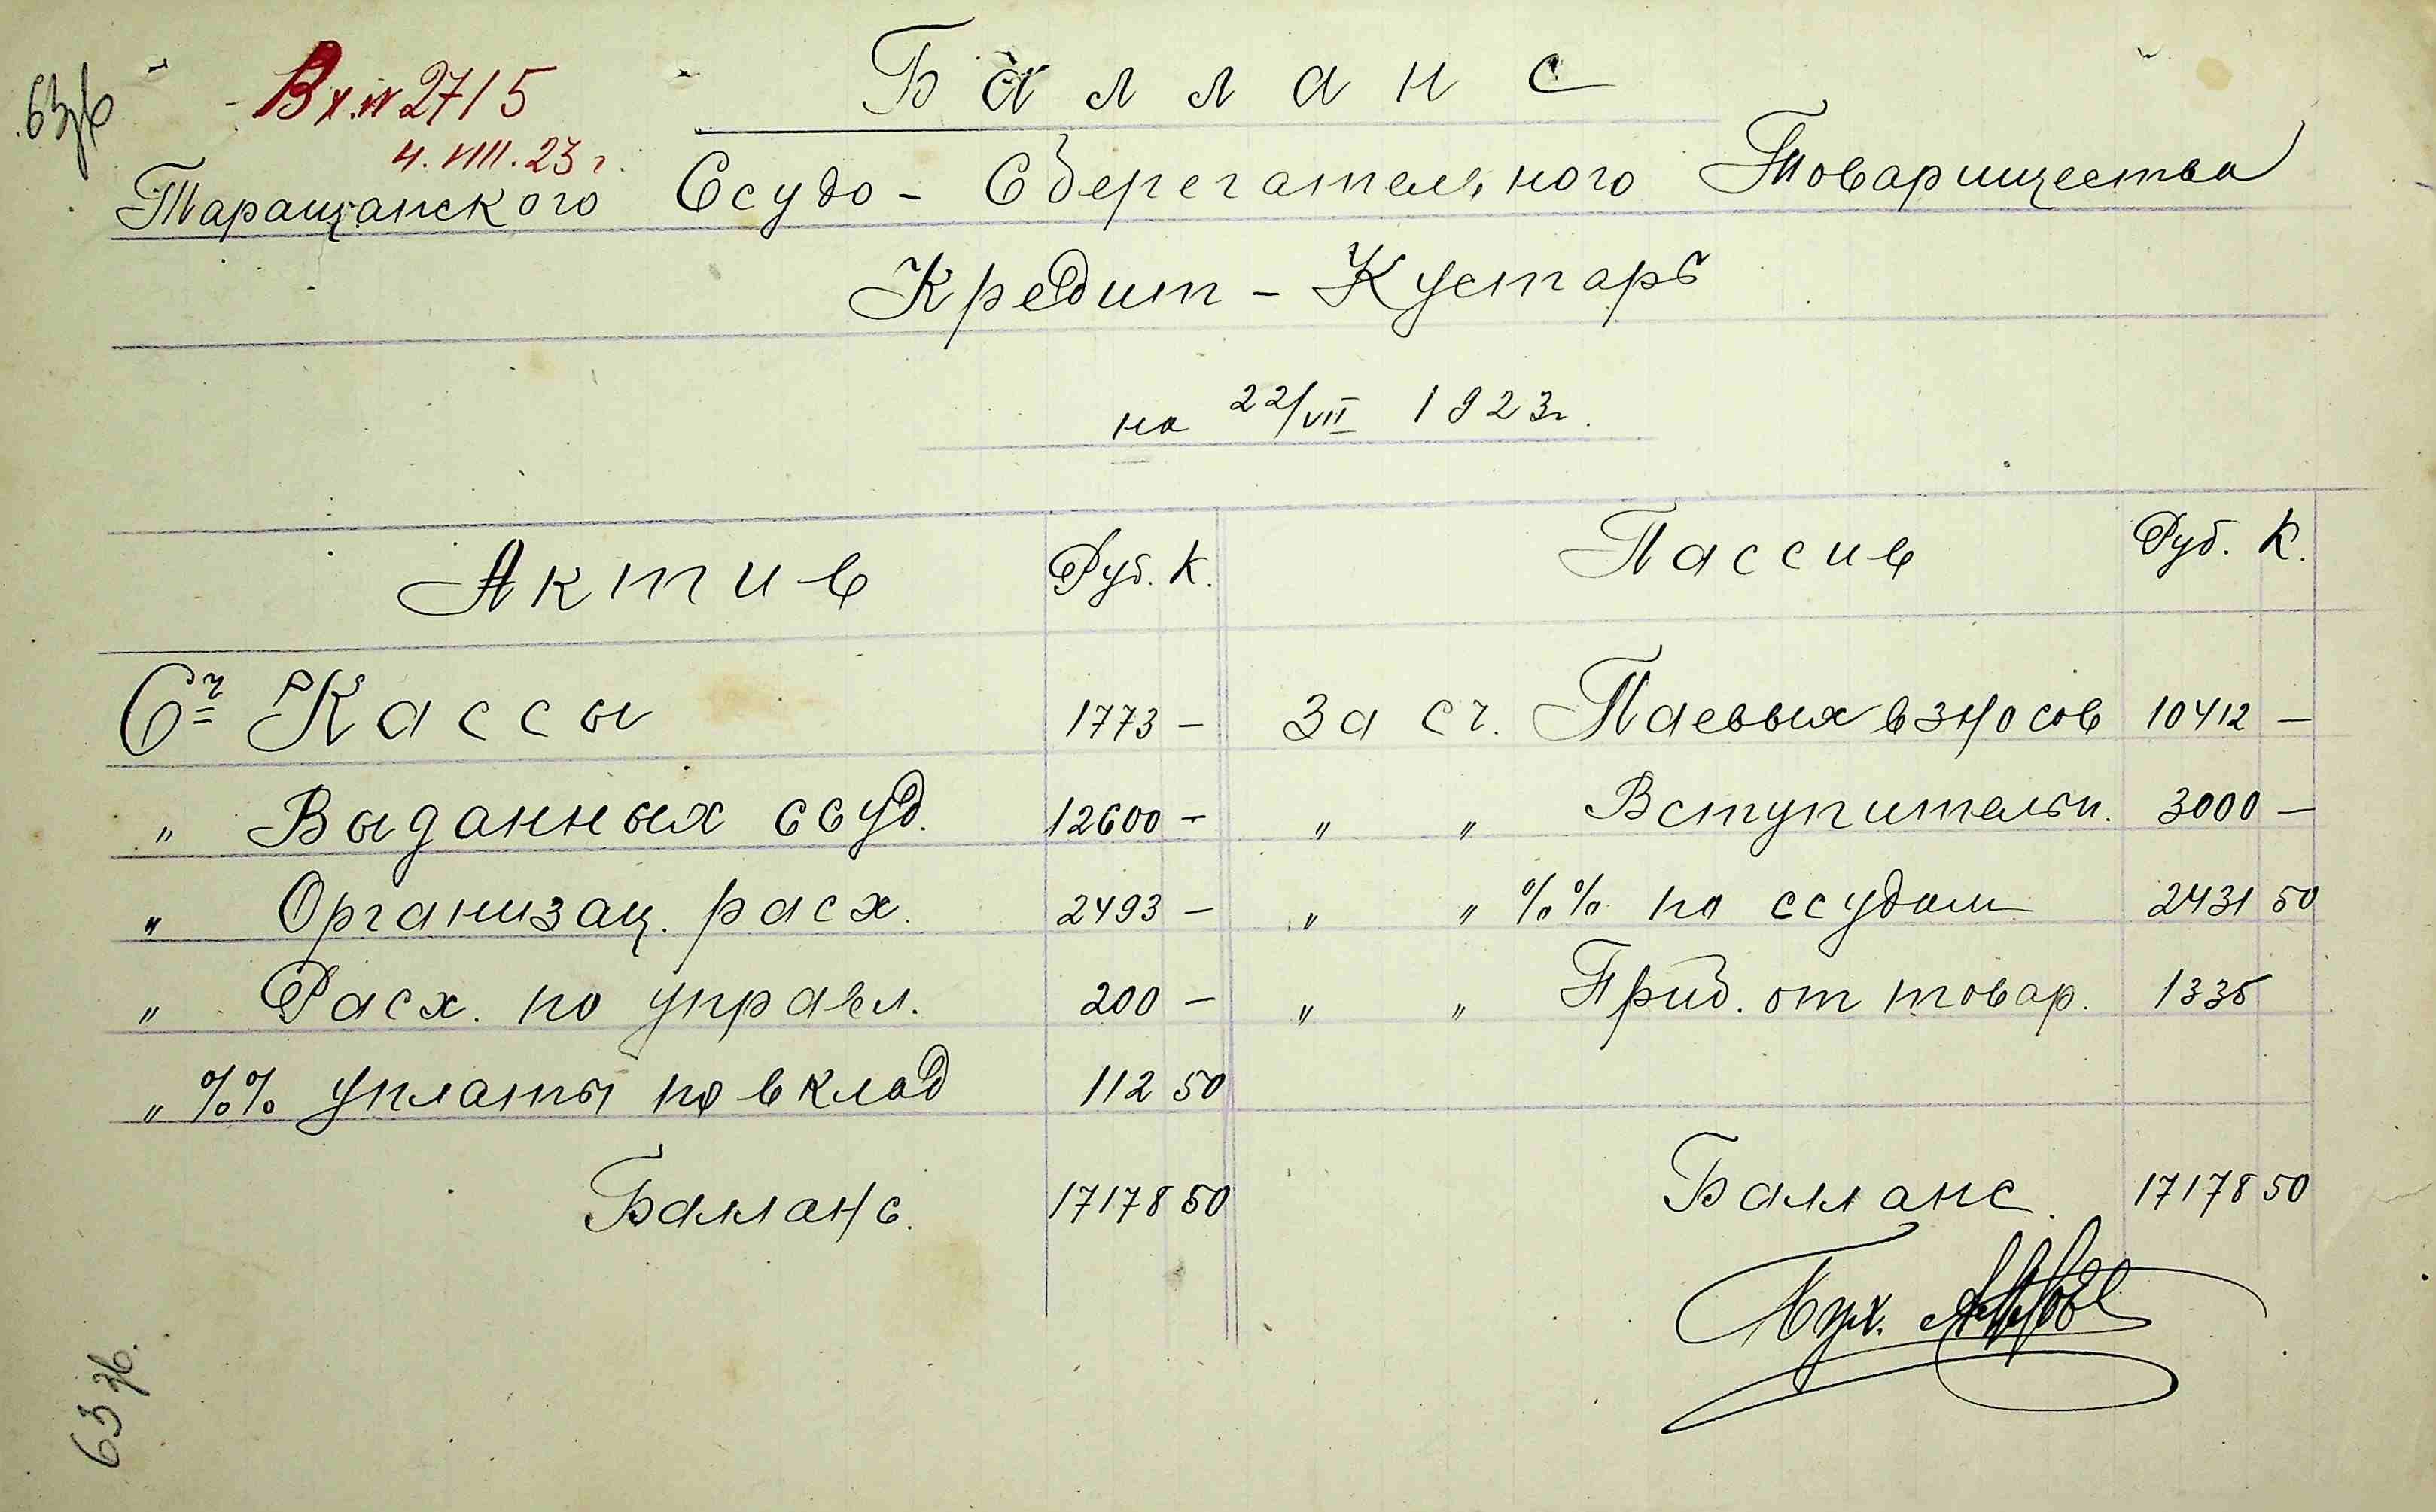 63зв
Вх. № 2715
4. VIII. 23 г.
Балланс
Таращанского Ссудо-Сберегательного Товарищества
Кредит-Кустарь
на 22/VII 1923г.
Актив Руб. К. Пассив Руб. К.
Сч Кассы 1773 — За сч. Паевых взносов 10412 —
" Выданных ссуд. 12600 — " " Вступительн. 3000 —
" Организац. расх. 2493 — " " %% по ссудам 2431 50
" Расх. по управл. 200 — " " Приб. от товар. 1335
" %% уплаты по вклад 112 50
Балланс. 17178 50 Балланс. 17178 50
Бух.
63 зв.